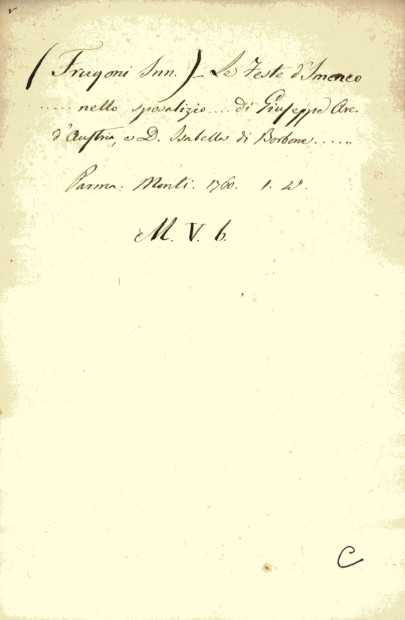 (Frugoni Inn.) – Le Feste d'Imeneo
..... nello sposalizio .... di Giuseppe Arc.
d'Austria, e D. Isabella di Borbone ......
Parma. Monti. 1760. 1. 2º.
M. V. 6.
C